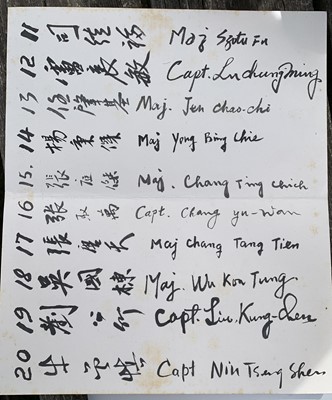 11 司徒福 Maj Szutu Fu
12 盧長敏 Capt. Lu chung ming
13 任肇基 Maj. Jen Chao-chi
14 楊秉傑 Maj Yong Bing Chie
15. 張應傑 Maj. Chang Ying Chieh
16. 張萬 Capt. Chang yu-wan
17 張唐天 Maj Chang Tang Tien
18 吳國棟 Maj. Wu Kou Tung
19 劉公竹 Capt. Liu. Kung-chu
20 牛 Capt Niu Tseng Shen